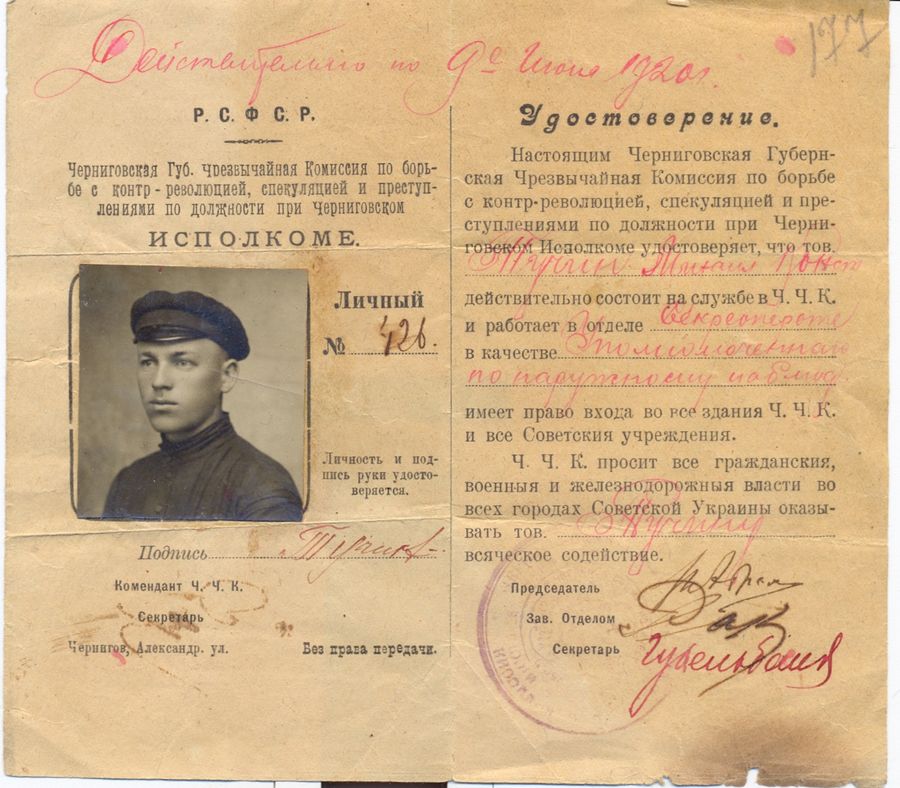 Действительно по 9е Июня 1920г.
177
Р. С. Ф С. Р.
Черниговская Губ. Чрезвычайная Комиссия по борь-
бе с контр-революцией, спекуляцией и преступ-
лениями по должности при Черниговском
ИСПОЛКОМЕ.
Личный
№ 426.
Личность и под-
пись руки удосто-
веряется.
Подпись
Комендант Ч. Ч. К.
Секретарь
Чернигов, Александр. ул. Без права передачи.
Удостоверение.
Настоящим Черниговская Губерн-
ская Чрезвычайная Комиссия по борьбе
с контр-революцией, спекуляцией и пре-
ступлениями по должности при Черни-
говском Исполкоме удостоверяет, что тов.
Михаил Конст
действительно состоит на службе в Ч. Ч. К.
и работает в отделе
в качестве Уполномоченного
по наружному наблюд
имеет право входа во все здания Ч. Ч. К.
и все Советския учреждения.
Ч. Ч. К. просит все гражданския,
военныя и железнодорожныя власти во
всех городах Советской Украины оказы-
вать тов.
всяческое содействие.
Председатель
Зав. Отделом
Секретарь